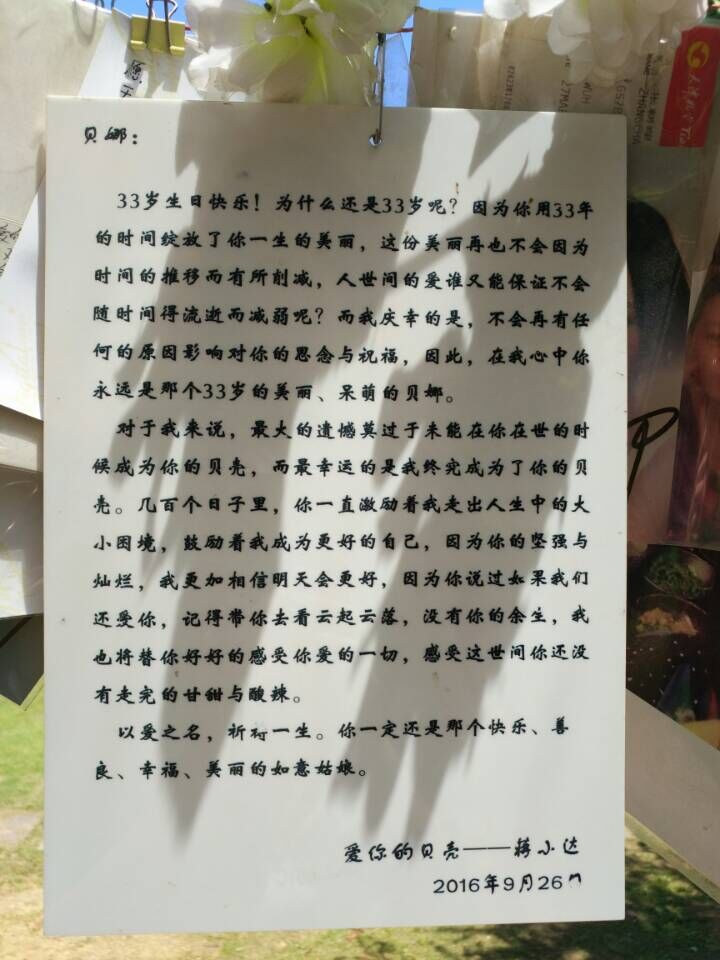 贝娜：
33岁生日快乐！为什么还是33岁呢？因为你用33年
的时间绽放了你一生的美丽，这份美丽再也不会因为
时间的推移而有所削减，人世间的爱谁又能保证不会
随时间得流逝而减弱呢？而我庆幸的是，不会再有任
何的原因影响对你的思念与祝福，因此，在我心中你
永远是那个33岁的美丽、呆萌的贝娜。
对于我来说，最大的遗憾莫过于未能在你在世的时
候成为你的贝壳，而最幸运的是我终究成为了你的贝
壳。几百个日子里，你一直激励着我走出人生中的大
小困境，鼓励着我成为更好的自己，因为你的坚强与
灿烂，我更加相信明天会更好，因为你说过如果我们
还爱你，记得带你去看云起云落，没有你的余生，我
也将替你好好的感受你爱的一切，感受这世间你还没
有走完的甘甜与酸辣。
以爱之名，祈祷一生。你一定还是那个快乐、善
良、幸福、美丽的如意姑娘。
爱你的贝壳——蒋小达
2016年9月26